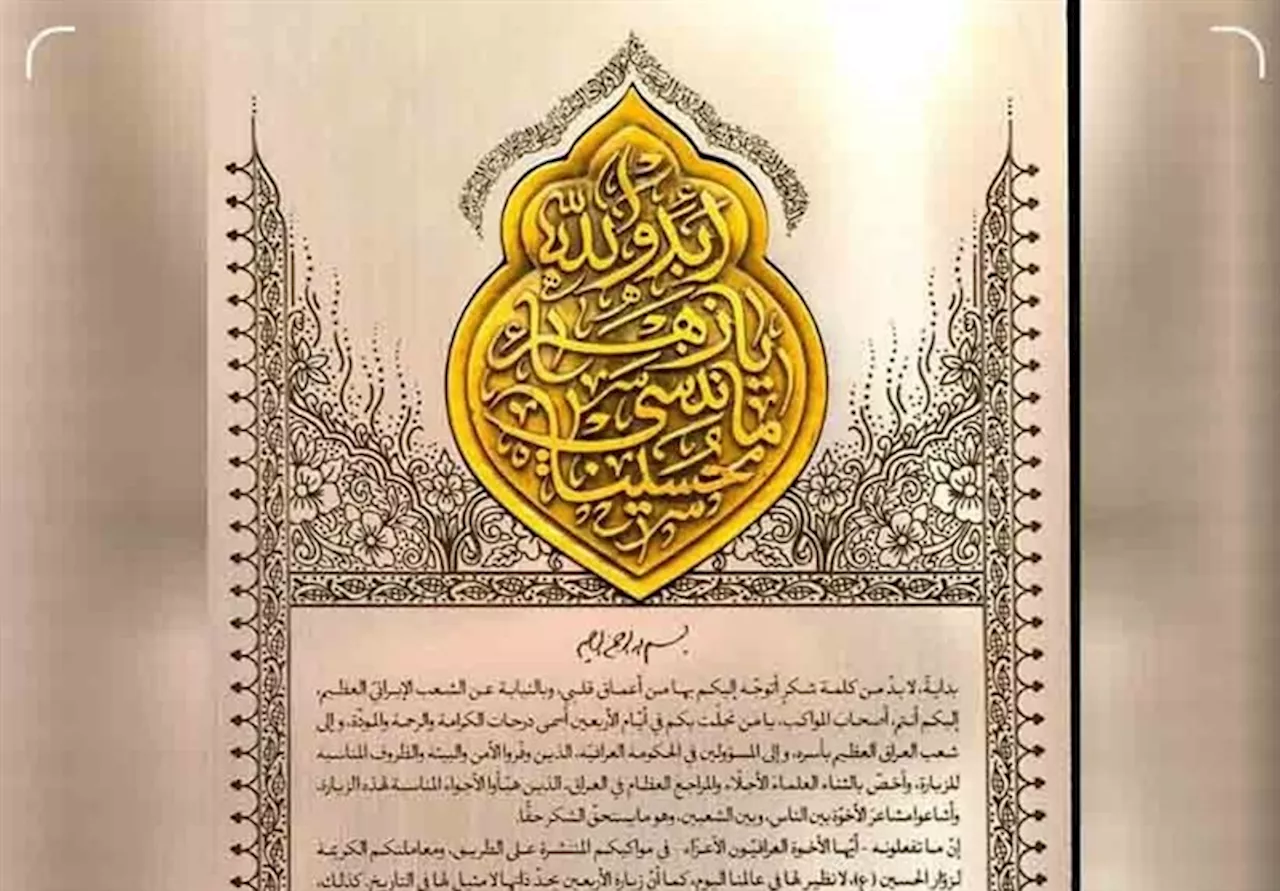 أبد والله
يا زهراء
ما ننسى
حسيناه
بسم الله الرحمن الرحيم
بدايةً، لا بدّ من كلمة شكرٍ أتوجّه إليكم بها من أعماق قلبي، وبالنيابة عن الشعب الإيرانيّ العظيم،
إليكم أنتم، أصحاب المواكب، يا من تجلّت بكم في أيّام الأربعين أسمى درجات الكرامة والرحمة والمودّة، وإلى
شعب العراق العظيم بأسره، وإلى المسؤولين في الحكومة العراقيّة، الذين وفّروا الأمن والبيئة والظروف المناسبة
للزيارة، وأخصّ بالثناء العلماءَ الأجلّاء والمراجع العظام في العراق، الذين هيّأوا الأجواء المناسبة لهذه الزيارة،
وأشاعوا مشاعرَ الأخوّة بين الناس، وبين الشعبين، وهو ما يستحقّ الشكر حقًّا.
إنّ ما تفعلونه - أيّها الأخوة العراقيّون الأعزّاء - في مواكبكم المنتشرة على الطريق، ومعاملتكم الكريمة
لزوّار الحسين (ع)، لا نظير لها في عالمنا اليوم، كما أنّ زيارة الأربعين بحدّ ذاتها لا مثيل لها في التاريخ. كذلك،